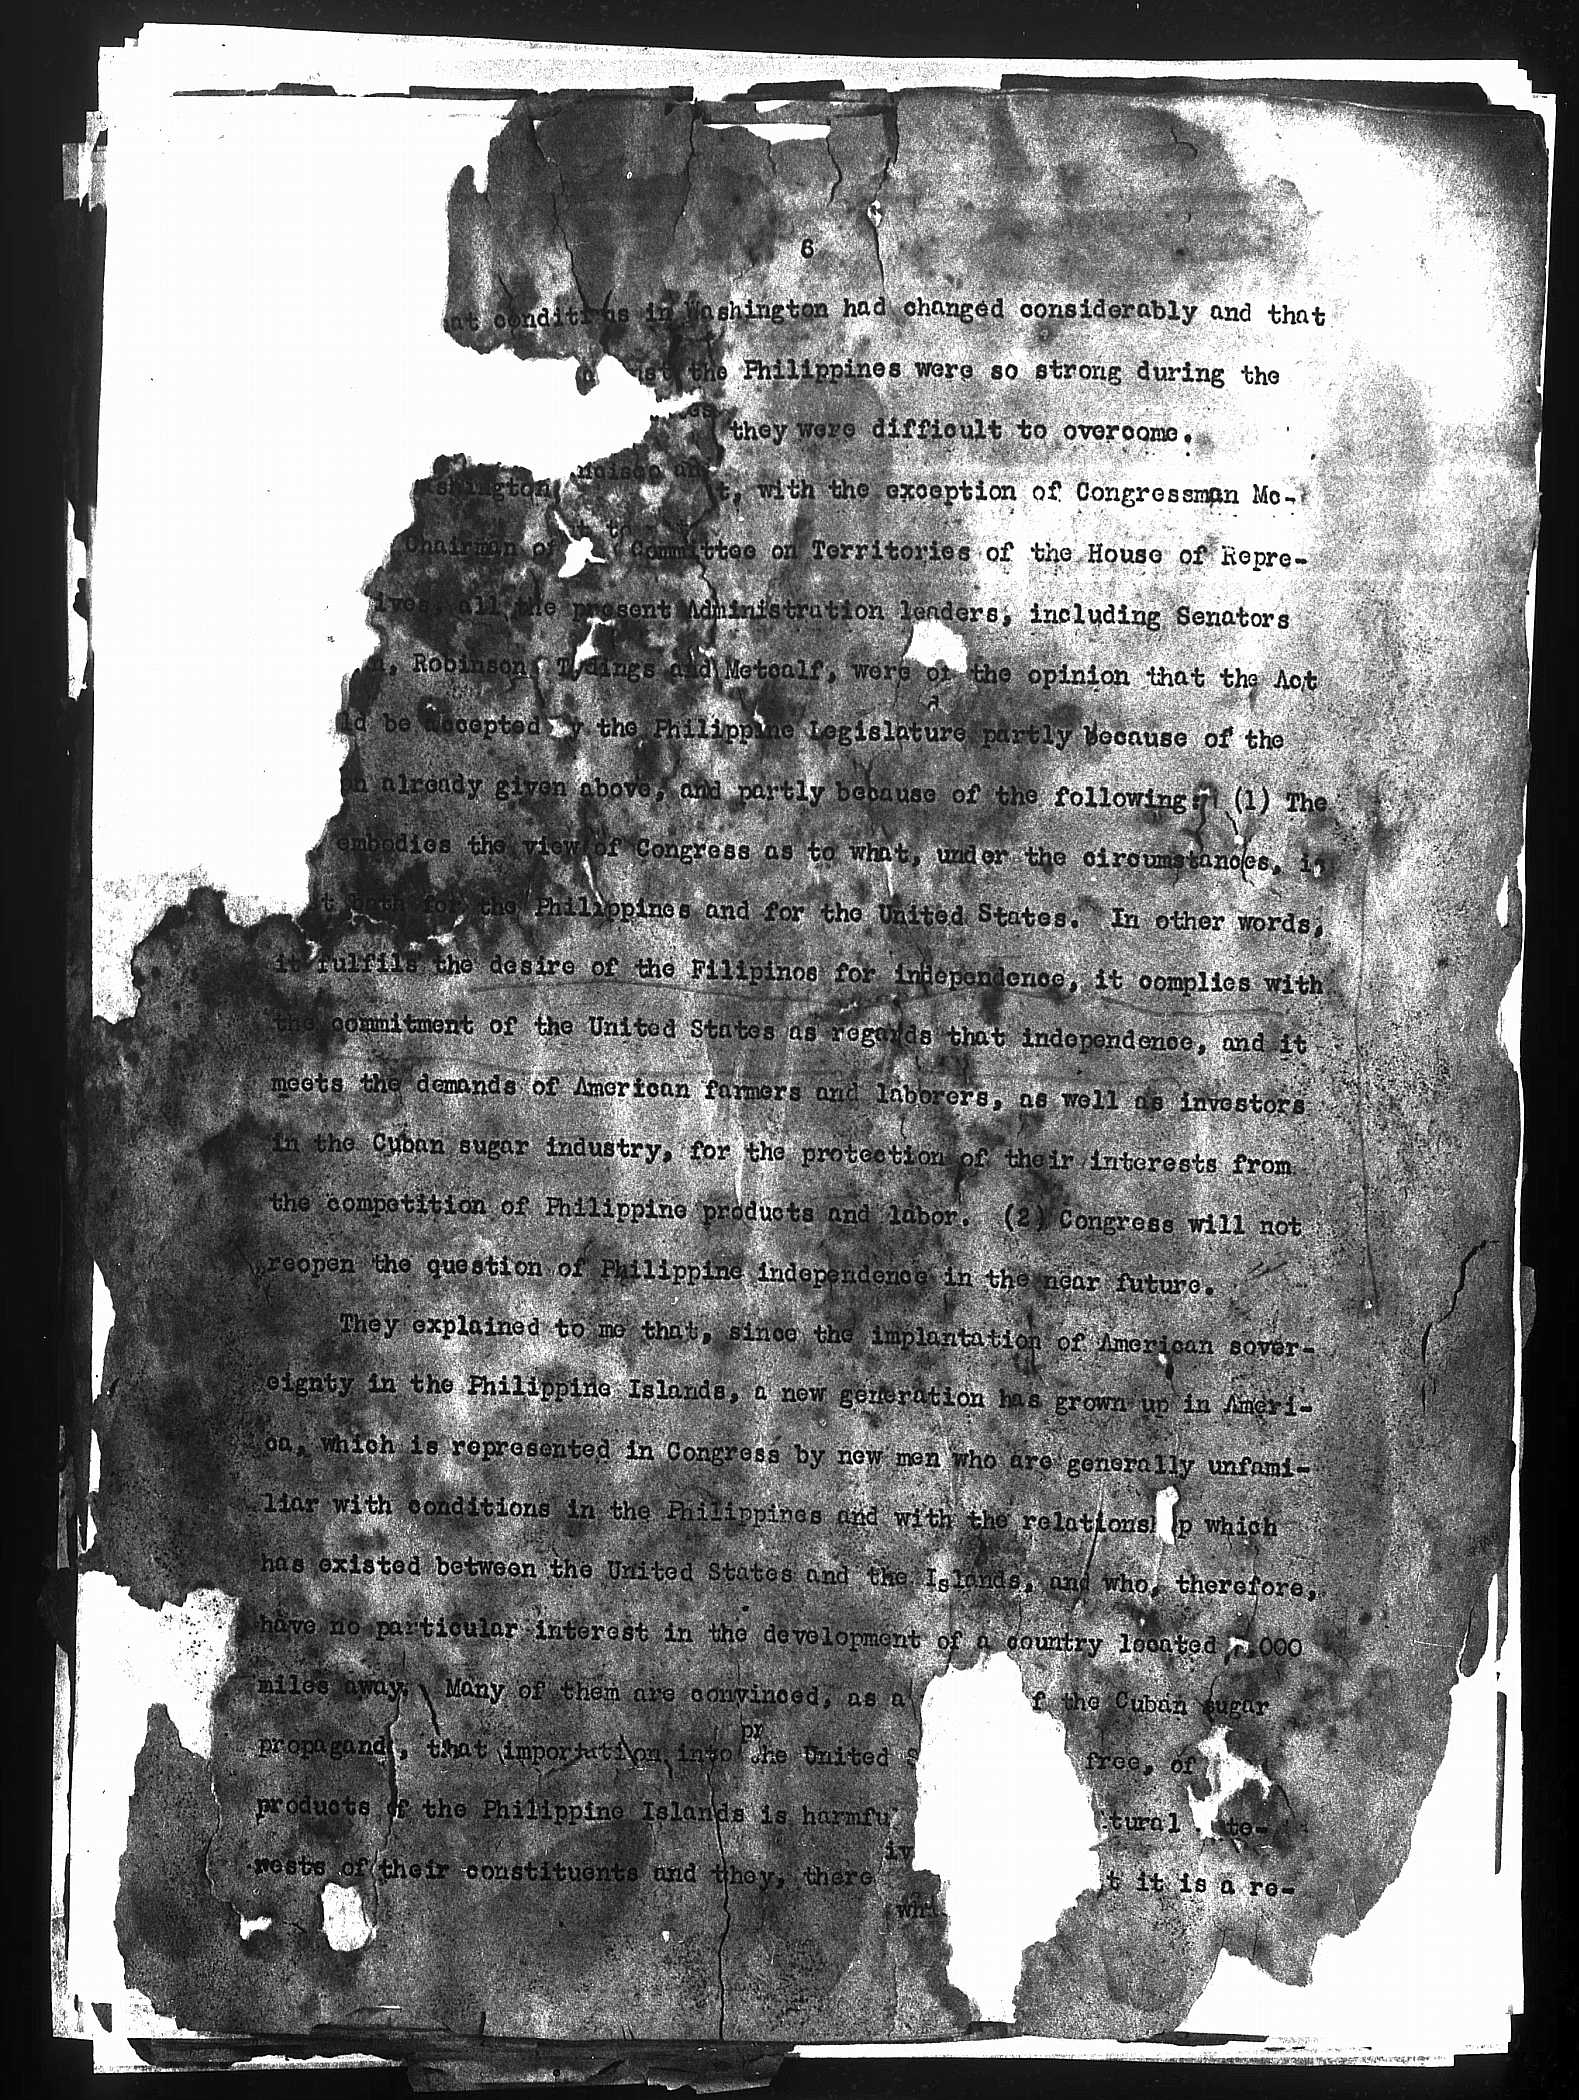 6
at conditions in Washington had changed considerably and that
the Philippines were so strong during the
they were difficult to overcome.
t, with the exception of Congressman Mc-
Chairman of Committee on Territories of the House of Repre-
ives, all the present Administration leaders, including Senators
n, Robinson, Tydings and Metcalf, were of the opinion that the Act
ld be accepted by the Philippine Legislature partly because of the
on already given above, and partly because of the following: (1) The
embodies the view of Congress as to what, under the circumstances, is
t both for the Philippines and for the United States. In other words,
it fulfils the desire of the Filipinos for independence, it complies with
the commitment of the United States as regards that independence, and it
meets the demands of American farmers and laborers, as well as investors
in the Cuban sugar industry, for the protection of their interests from
the competition of Philippine products and labor. (2) Congress will not
reopen the question of Philippine independence in the near future.
They explained to me that, since the implantation of American sover-
eignty in the Philippine Islands, a new generation has grown up in Ameri-
ca, which is represented in Congress by new men who are generally unfami-
liar with conditions in the Philippines and with the relationship which
has existed between the United States and the Islands, and who, therefore,
have no particular interest in the development of a country located ,000
miles away. Many of them are convinced, as a f the Cuban sugar
propagand, that importation into the United S free, of
products of the Philippine Islands is harmfu tural te-
rests of their constituents and they, there t it is a re-